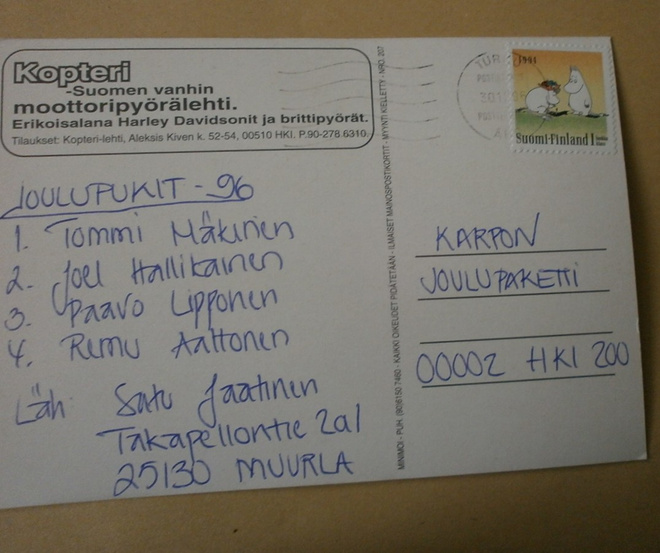 Kopteri
-Suomen vanhin
moottoripyörälehti.
Erikoisalana Harley Davidsonit ja brittipyörät.
Tilaukset: Kopteri-lehti, Aleksis Kiven k. 52-54, 00510 HKI. P.90-278 6310.
JOULUPUKIT - 96
1. Tommi Mäkinen
2. Joel Hallikainen
3. Paavo Lipponen
4. Remu Aaltonen
Läh. Satu Jaatinen
Takapellontie 2a1
25130 MUURLA
MINIMOI - PUH. (90)6150 7460 - KAIKKI OIKEUDET PIDÄTETÄÄN - ILMAISET MAINOSPOSTIKORTIT - MYYNTI KIELLETTY - NRO. 207
1991
Suomi-Finland 1
KARPON
JOULUPAKETTI
00002 HKI 200